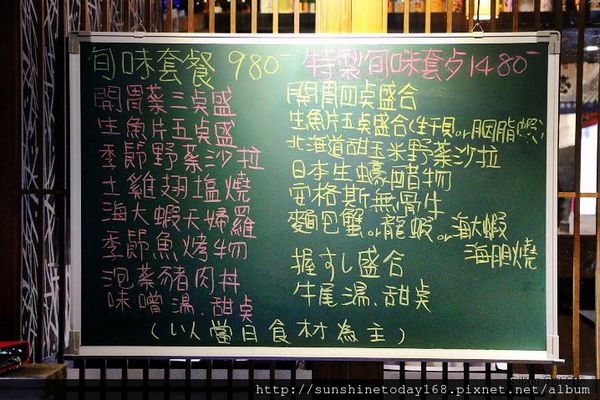 旬味套餐 980-
開胃菜三点盛
生魚片五点盛
季節野菜沙拉
土雞翅塩燒
海大蝦天婦羅
季節魚烤物
泡菜豬肉丼
味噌湯、甜点
特製旬味套夕1480-
開胃四点盛合
生魚片五点盛合(生干貝or胭脂蝦)
北海道甜玉米野菜沙拉
日本生蠔醋物
安格斯無骨牛
麵包蟹or龍蝦or海大蝦
海胆燒
握すし盛合
牛尾湯、甜点
(以當日食材為主)
http://sunshinetoday168.pixnet.net/album